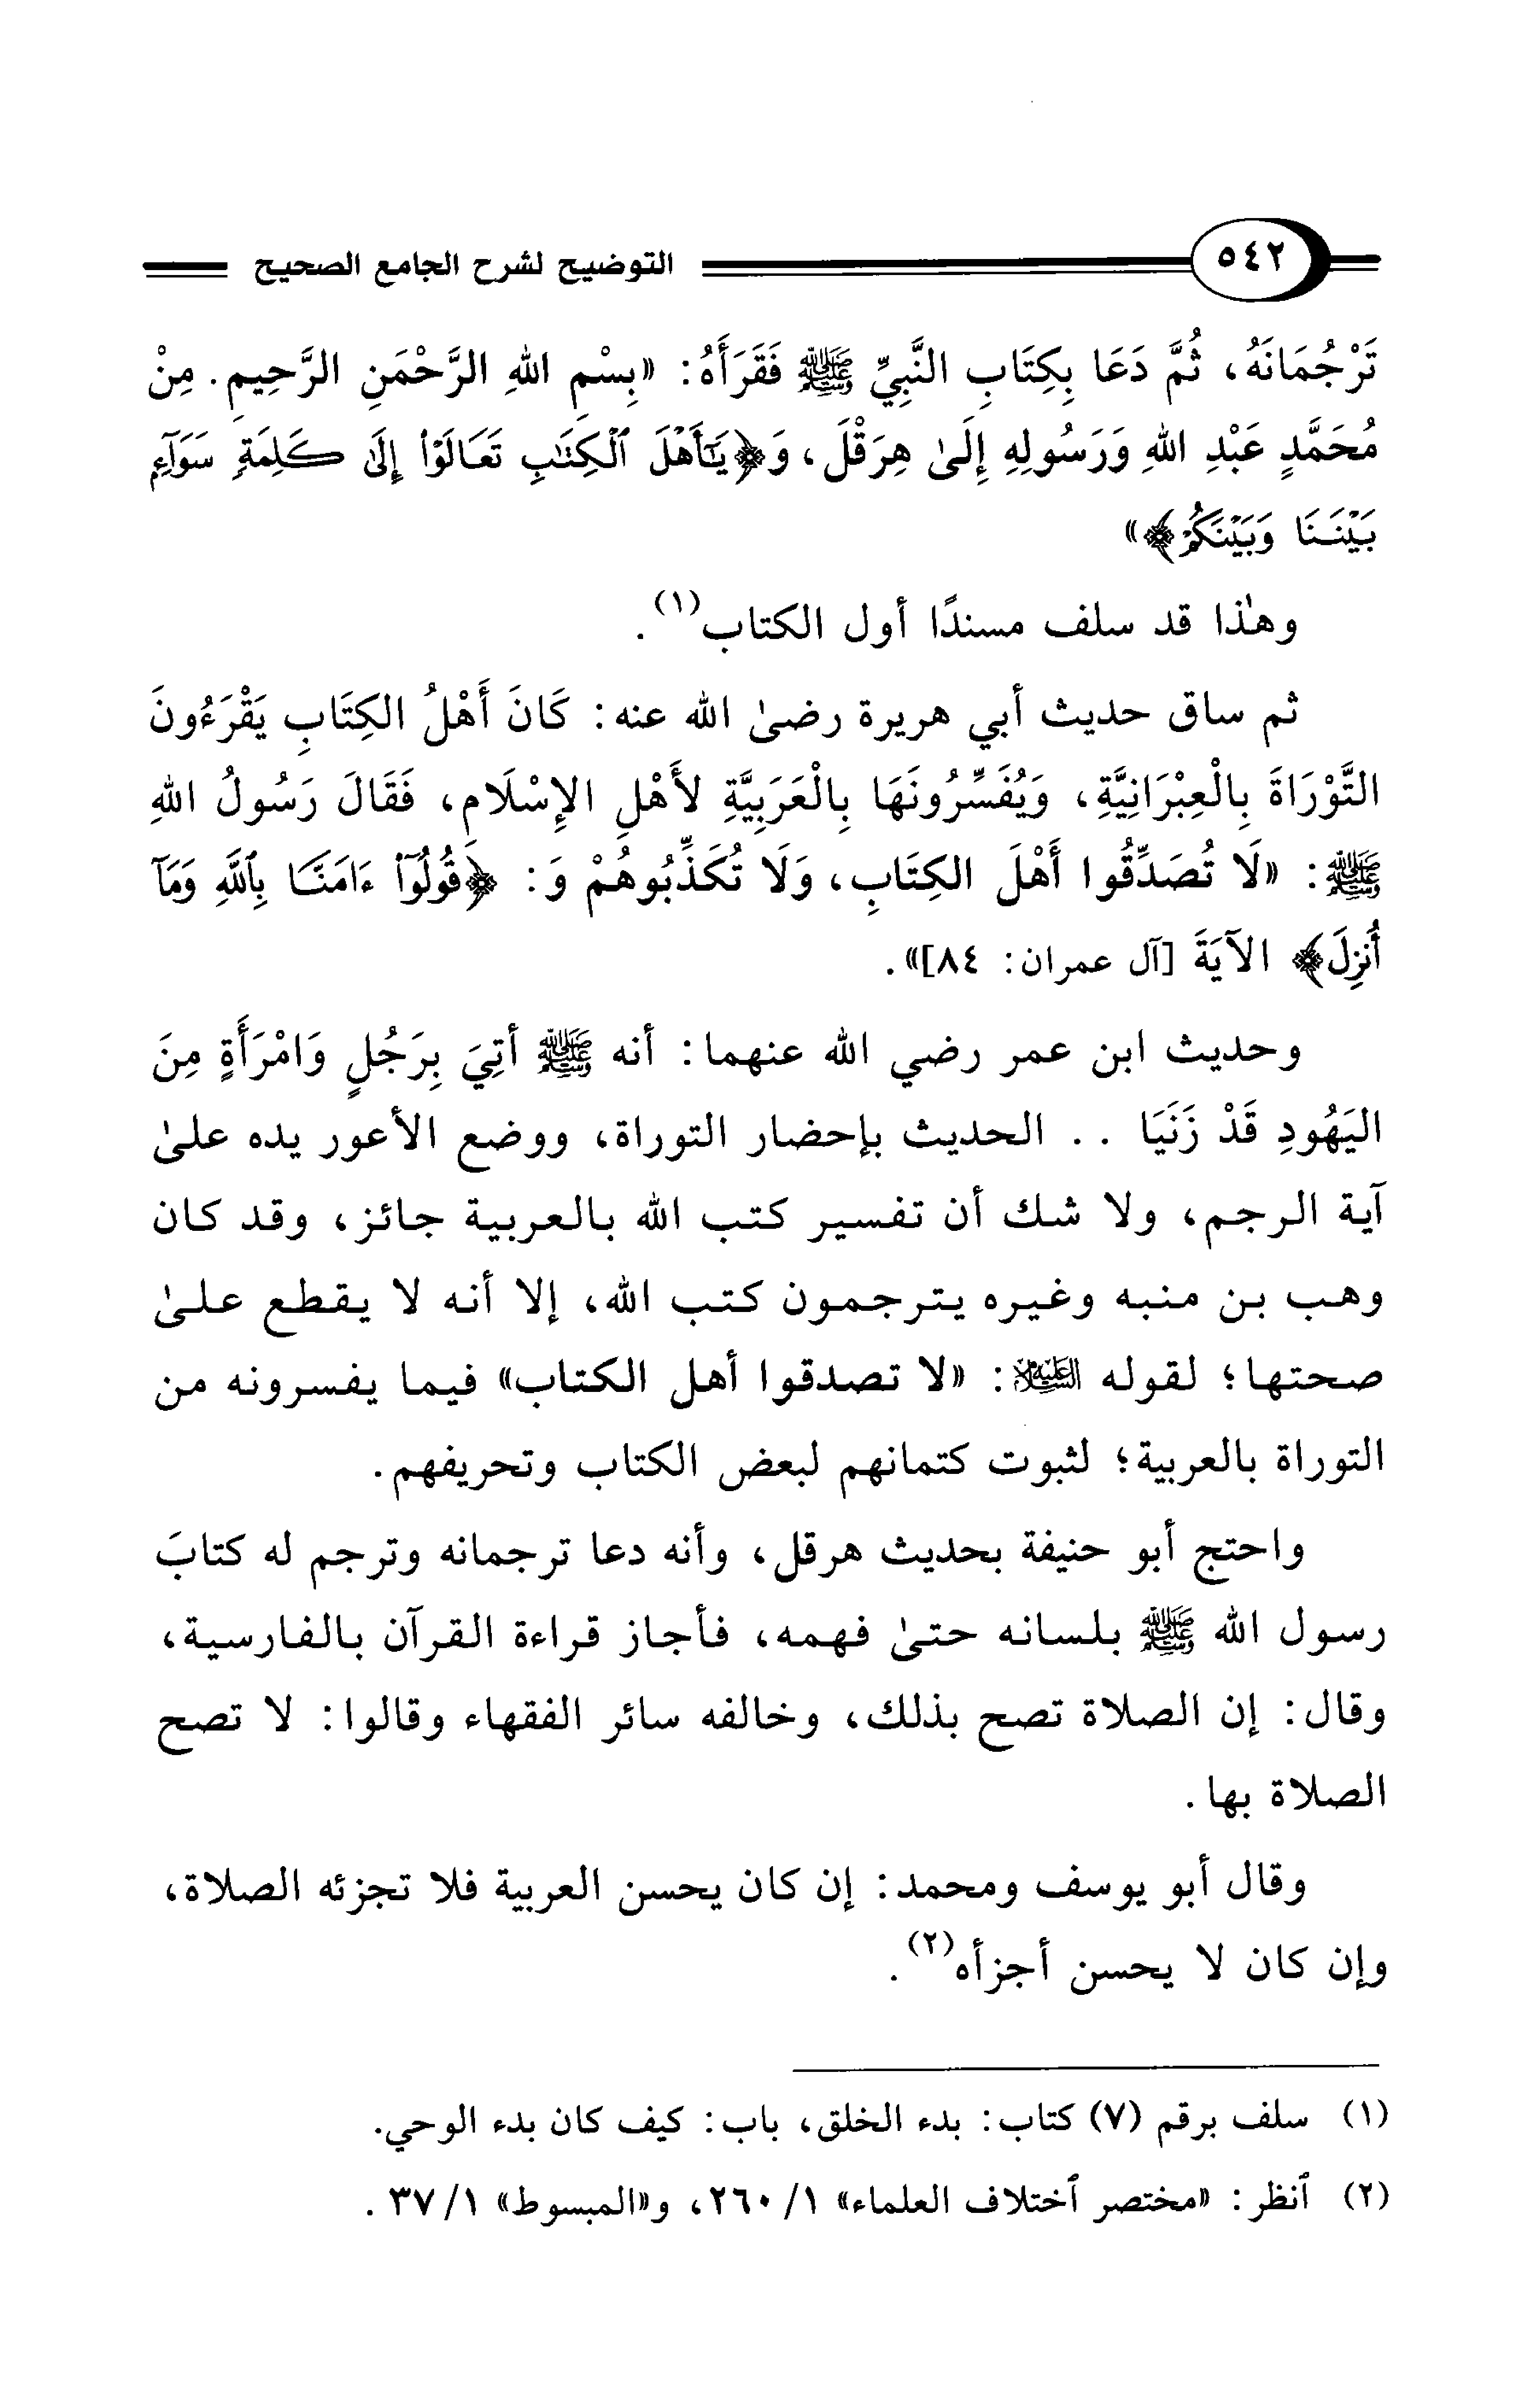 ٥٤٢ التوضيح لشرح الجامع الصحيح
تَرْجُمَانَهُ، ثُمَّ دَعَا بِكِتَابِ النَّبِيِّ ﷺ فَقَرَأَهُ: «بِسْمِ اللهِ الرَّحْمَنِ الرَّحِيمِ. مِنْ
مُحَمَّدٍ عَبْدِ اللهِ وَرَسُولِهِ إِلَىٰ هِرَقْلَ، وَ﴿يَٰٓأَهْلَ ٱلْكِتَٰبِ تَعَالَوْا۟ إِلَىٰ كَلِمَةٍ سَوَآءٍ
بَيْنَنَا وَبَيْنَكُمْ﴾»
وهٰذا قد سلف مسندًا أول الكتاب(١).
ثم ساق حديث أبي هريرة رضىٰ الله عنه: كَانَ أَهْلُ الكِتَابِ يَقْرَءُونَ
التَّوْرَاةَ بِالْعِبْرَانِيَّةِ، وَيُفَسِّرُونَهَا بِالْعَرَبِيَّةِ لأَهْلِ الإِسْلَامِ، فَقَالَ رَسُولُ اللهِ
ﷺ: «لَا تُصَدِّقُوا أَهْلَ الكِتَابِ، وَلَا تُكَذِّبُوهُمْ وَ: ﴿قُولُوٓا۟ ءَامَنَّا بِٱللَّهِ وَمَآ
أُنزِلَ﴾ الآيَةَ [آل عمران: ٨٤]».
وحديث ابن عمر رضي الله عنهما: أنه ﷺ أتِيَ بِرَجُلٍ وَامْرَأَةٍ مِنَ
اليَهُودِ قَدْ زَنَيَا .. الحديث بإحضار التوراة، ووضع الأعور يده علىٰ
آية الرجم، ولا شك أن تفسير كتب الله بالعربية جائز، وقد كان
وهب بن منبه وغيره يترجمون كتب الله، إلا أنه لا يقطع علىٰ
صحتها؛ لقوله عليه السلام: «لا تصدقوا أهل الكتاب» فيما يفسرونه من
التوراة بالعربية؛ لثبوت كتمانهم لبعض الكتاب وتحريفهم.
واحتج أبو حنيفة بحديث هرقل، وأنه دعا ترجمانه وترجم له كتابَ
رسول الله ﷺ بلسانه حتىٰ فهمه، فأجاز قراءة القرآن بالفارسية،
وقال: إن الصلاة تصح بذلك، وخالفه سائر الفقهاء وقالوا: لا تصح
الصلاة بها.
وقال أبو يوسف ومحمد: إن كان يحسن العربية فلا تجزئه الصلاة،
وإن كان لا يحسن أجزأه(٢).
(١) سلف برقم (٧) كتاب: بدء الخلق، باب: كيف كان بدء الوحي.
(٢) ٱنظر: «مختصر ٱختلاف العلماء» ١/ ٢٦٠، و«المبسوط» ١/ ٣٧.